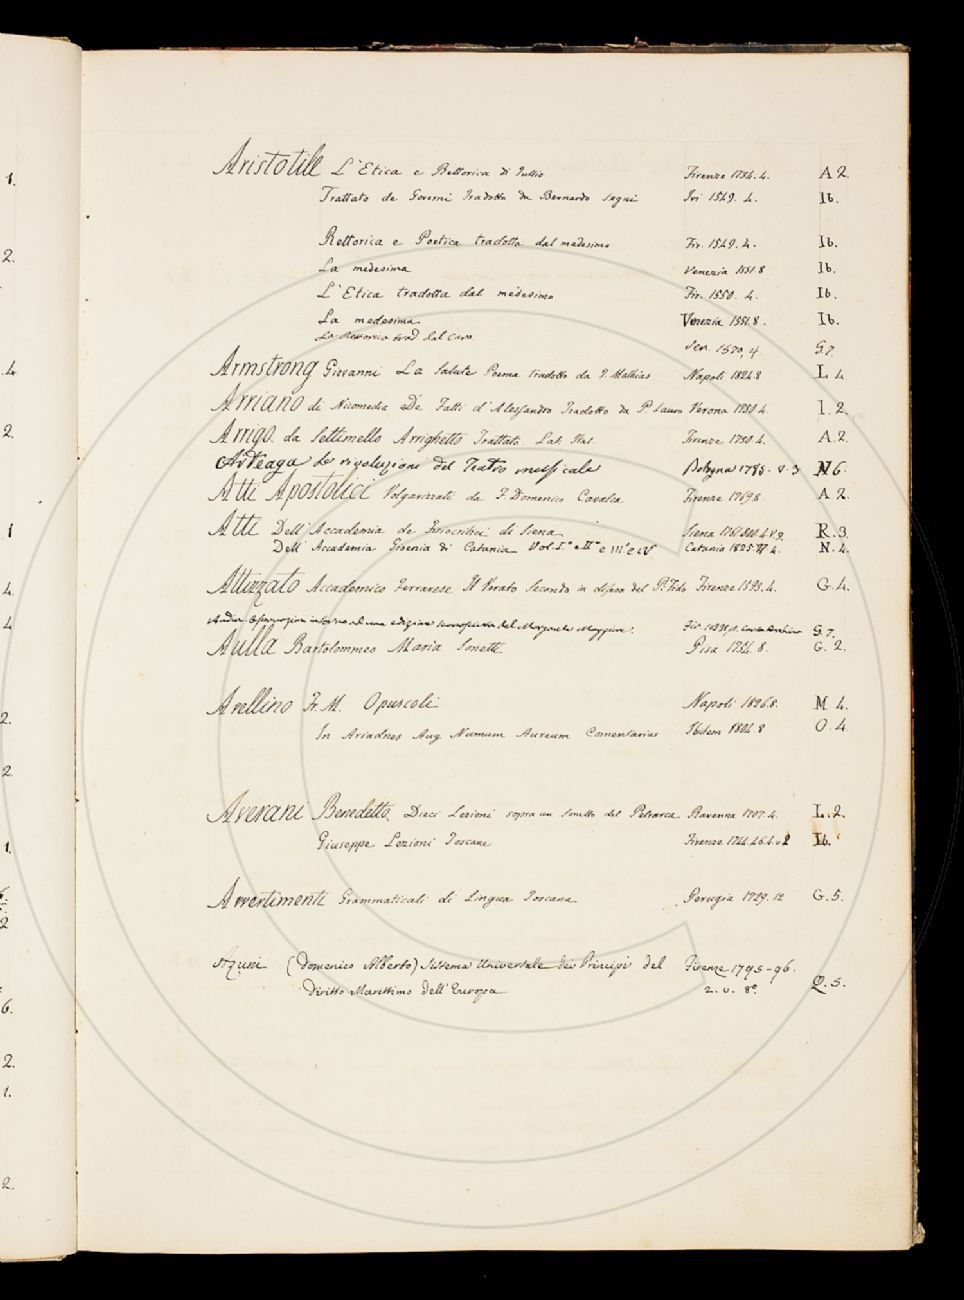 Aristotile L'Etica e Rettorica di Tullio Firenze 1734. 4. A 2.
Trattato de Governi Tradotto da Bernardo Segni Ivi 1549. 4. Ib.
Rettorica e Poetica tradotta dal medesimo Fir. 1549. 4. Ib.
La medesima Venezia 1551 8 Ib.
L'Etica tradotta dal medesimo Fir. 1550. 4. Ib.
La medesima Venezia 1551. 8. Ib.
La Rettorica trad. dal Caro Ven. 1570. 4. G. 7.
Armstrong Giovanni La Salute Poema tradotto da T. Mathias Napoli 1824 8 L 4
Arriano di Nicomedia De Fatti d'Alessandro Tradotto da P. Lauro Verona 1730 4. I. 2.
Arrigo da Settimello Arrighetto Trattato Lat. Ital. Firenze 1730. 4. A. 2.
Arteaga Le rivoluzioni del Teatro musicale Bologna 1785. v. 3 N 6.
Atti Apostolici Volgarizzati da F. Domenico Cavalca Firenze 1769 8. A 2.
Atti Dell'Accademia de Fisiocritici di Siena Siena R. 3.
Dell'Accademia Gioenia di Catania Vol. I.° e II.° e III° e IV Catania 1825. 4. N. 4.
Attizzato Accademico Ferrarese Il Verato Secondo in difesa del P. Fido Firenze 1593. 4. G. 4.
Audin Osservazioni intorno ad una edizione del Morgante Maggiore. G. 7.
Aulla Bartolommeo Maria Sonetti Pisa 1734. 8. G. 2.
Avellino Fr. M. Opuscoli Napoli 1826. 8. M 4.
In Ariadnes Aug. Numum Aureum Comentarius Ibidem 1804. 8 O. 4
Averani Benedetto Dieci Lezioni sopra un Sonetto del Petrarca Ravenna 1707. 4. L. 2.
Giuseppe Lezioni Toscane Firenze 1744. 46. 4. v. 2 Ib.
Avvertimenti Grammaticali di Lingua Toscana Perugia 1729. 12 G. 5.
Azuni (Domenico Alberto) Sistema Universale dei Principi del Firenze 1795-96.
Diritto Marittimo dell'Europa 2. v. 8°. Q. 5.